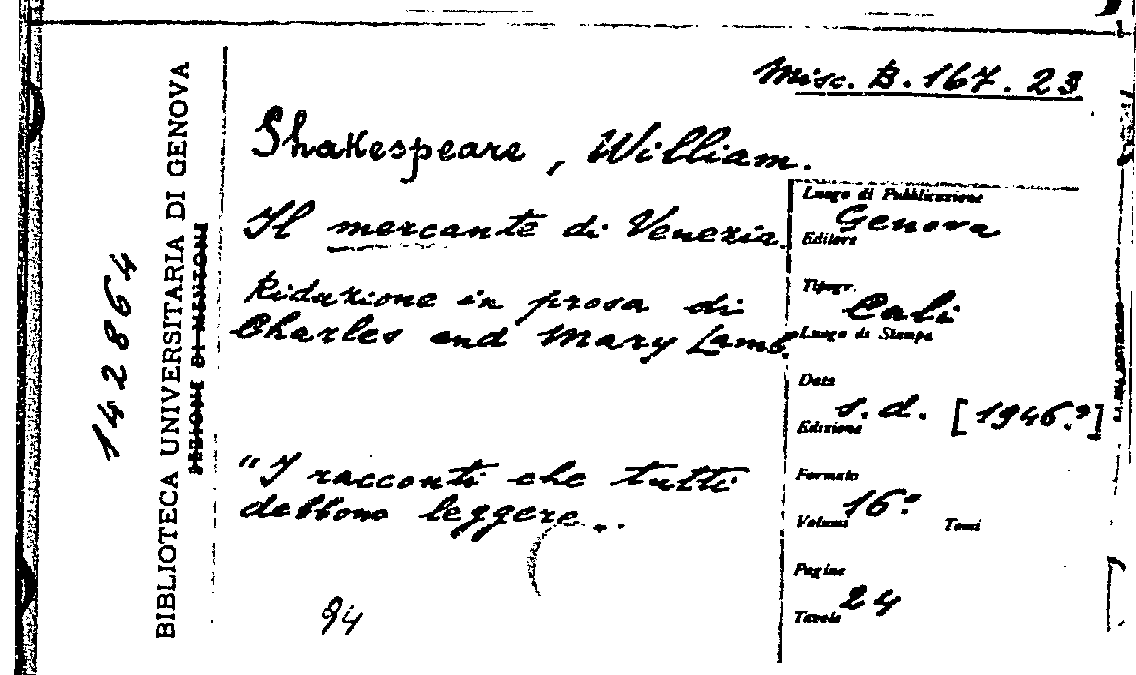 Misc. B. 167. 23
Shakespeare, William.
Il mercante di Venezia.
Riduzione in prosa di
Charles and Mary Lamb.
"I racconti che tutti
debbono leggere..
94
142864
BIBLIOTECA UNIVERSITARIA DI GENOVA
Luogo di Pubblicazione
Genova
Editore
Tipogr.
Calì
Luogo di Stampa
Data
s. d. [1946.?]
Edizione
Formato
16°
Volumi Tomi
Pagine
24
Tavole